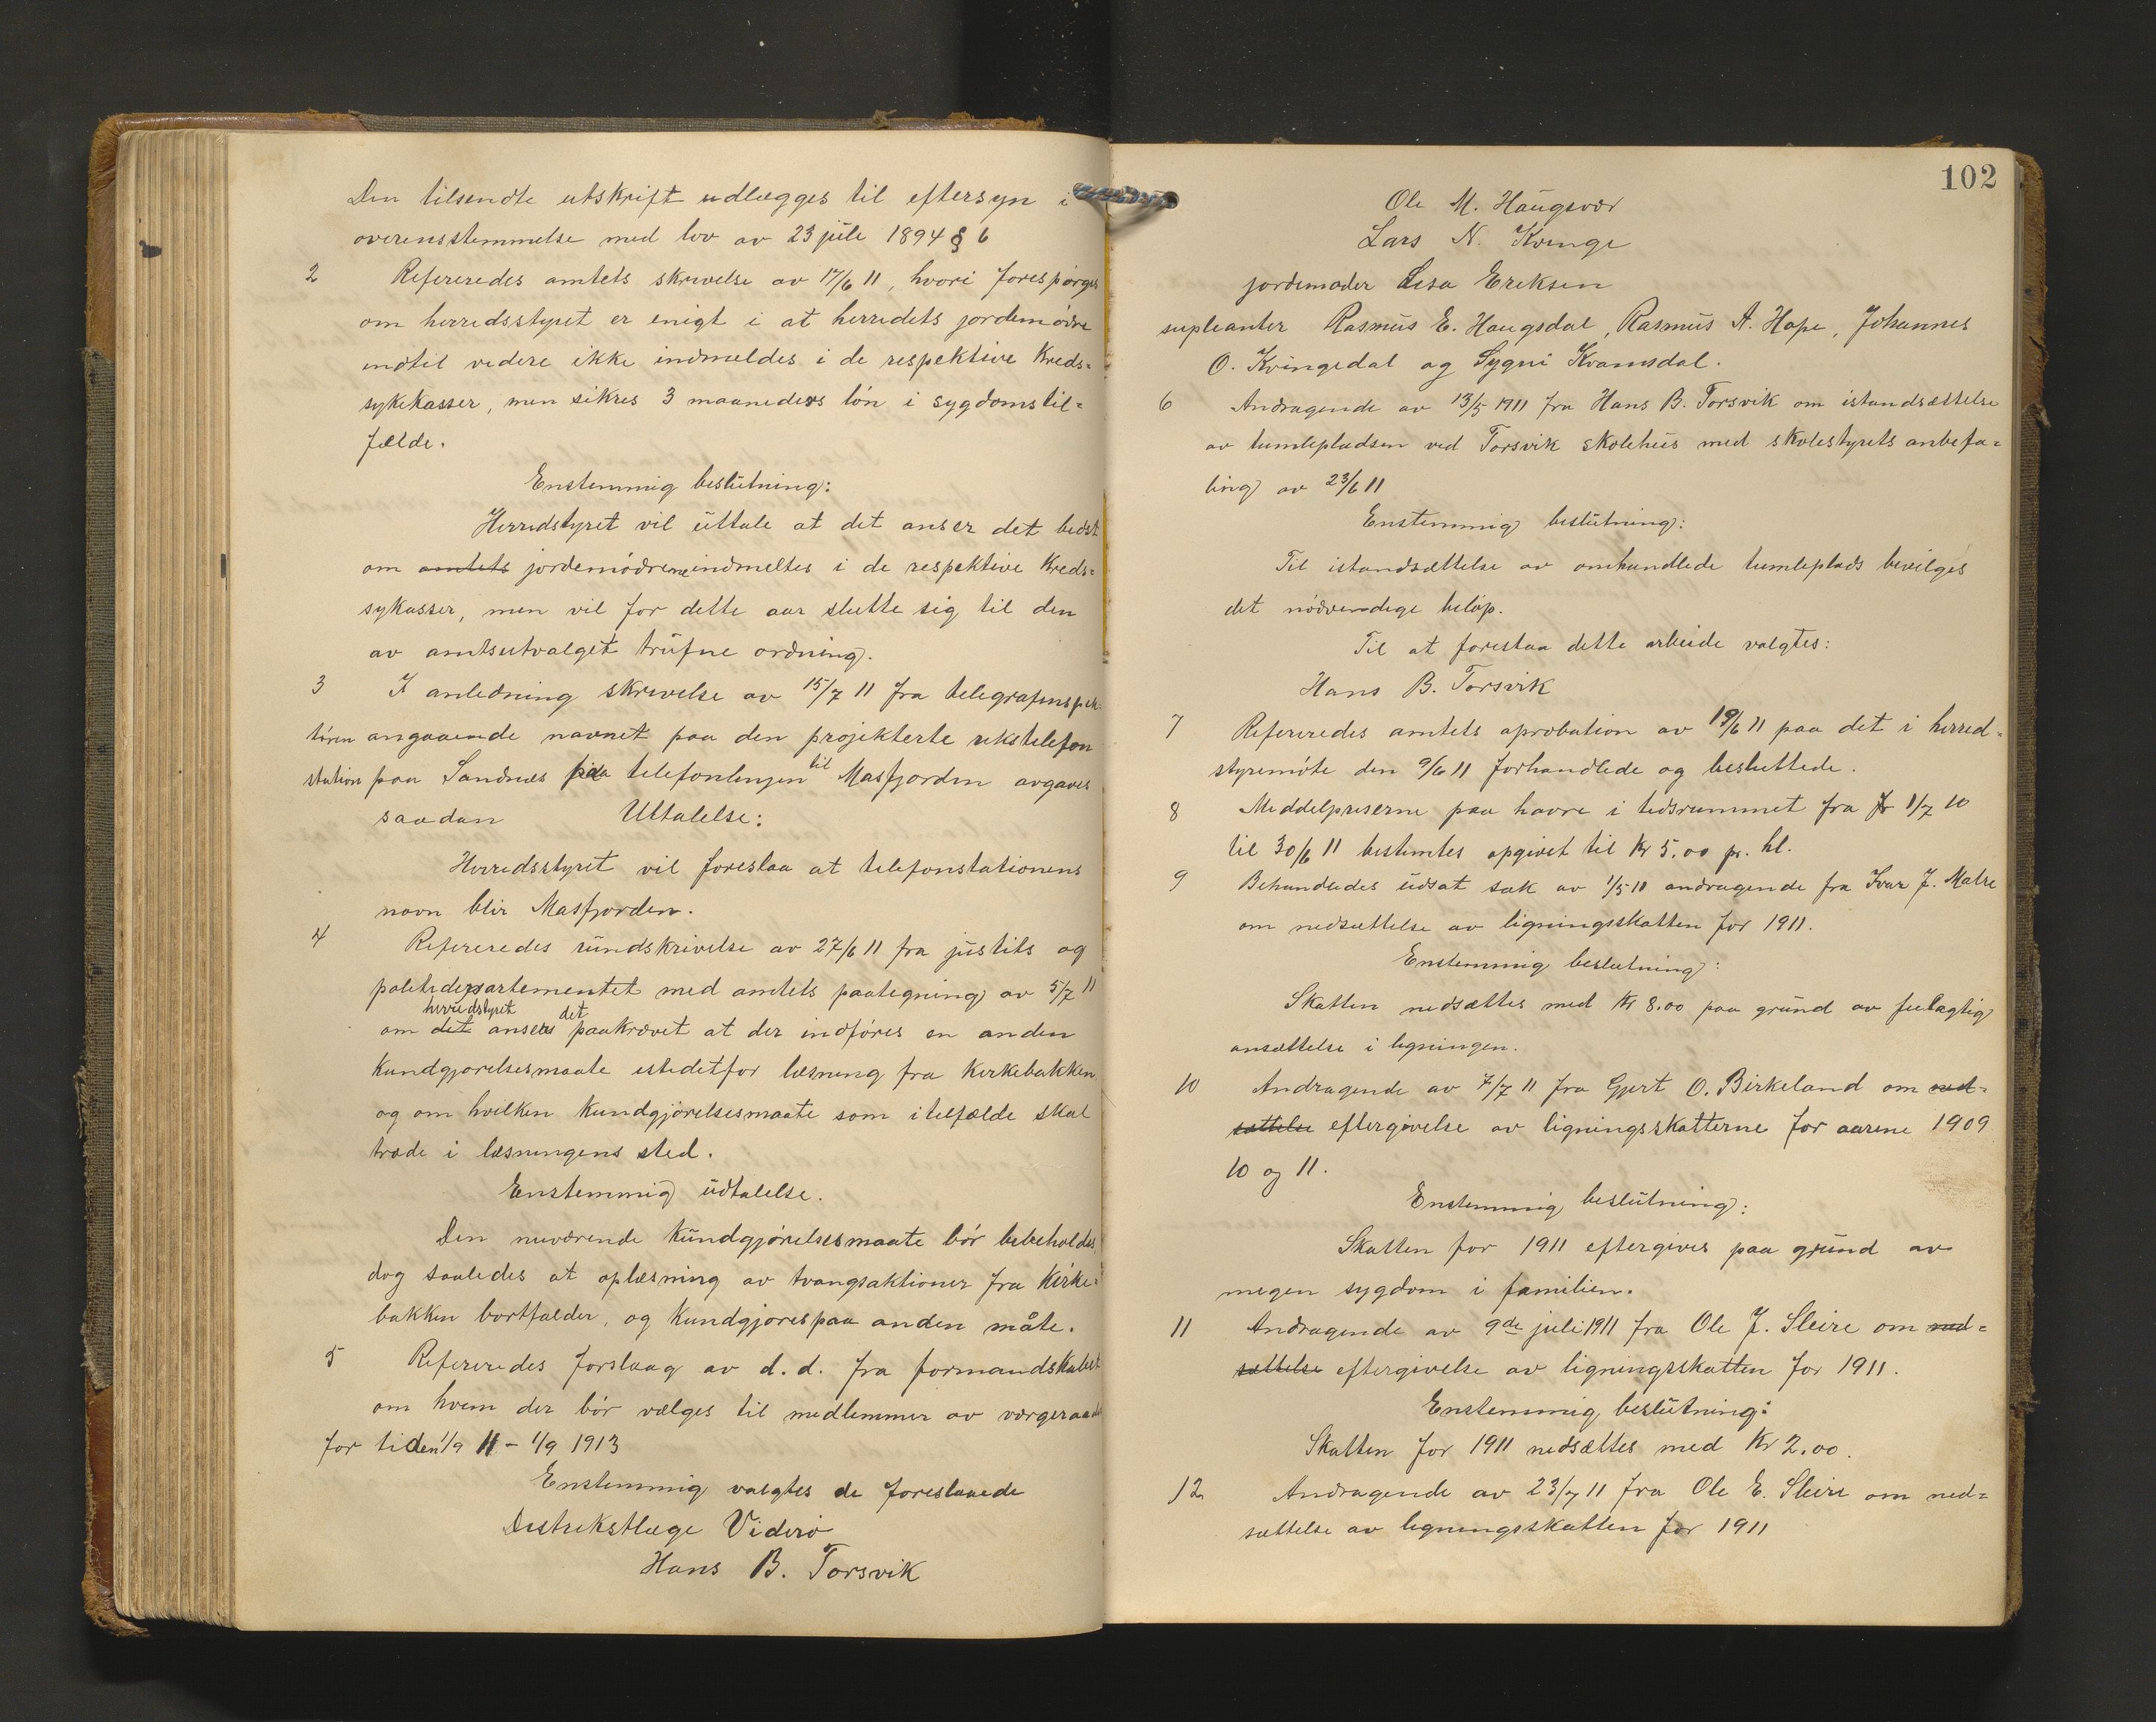 Den tilsendte utskrift udlægges til eftersyn i
overensstemmelse med lov av 23 juli 1894 § 6
2 Refereredes amtets skrivelse av 17/6 11, hvori forespørges
om herredsstyret er enigt i at herredets jordemødre
indtil videre ikke indmeldes i de respektive kreds=
sykekasser, men sikres 3 maaneders løn i sygdomstil=
fælde.
Enstemmig beslutning:
Herredstyret vil uttale at det anser det bedst
om amtets jordemødrene indmeldes i de respektive kreds=
sykasser, men vil for dette aar slutte sig til den
av amtsutvalget trufne ordning.
3 I anledning skrivelse av 15/7 11 fra telegrafinspek-
tøren angaaende navnet paa den projekterte rikstelefon
station paa Sandnes paa telefonlinjen til Masfjorden avgaves
saadan Uttalelse:
Herredsstyret vil foreslaa at telefonstationens
navn blir Masfjorden.
4 Refereredes rundskrivelse av 27/6 11 fra justits og
politidepartementet med amtets paategning av 5/7 11
om det herredstyret ansees det paakrævet at der indføres en anden
kundgjørelsesmaate istedetfor læsning fra kirkebakken
og om hvilken kundgjørelsesmaate som itilfælde skal
træde i læsningens sted.
Enstemmig udtalelse.
Den nuværende kundgjørelsesmaate bør bibeholdes,
dog saaledes at oplæsning av tvangsaktioner fra kirke=
bakken bortfalder, og kundgjøres paa anden måte.
5 Refereredes forslaag av d. d. fra formandskabet
om hvem der bør vælges til medlemmer av værgeraadet
for tiden 1/9 11 - 1/9 1913
Enstemmig valgtes de foreslaaede
Distriktslæge Viderø
Hans B. Torsvik
102
Ole M. Haugsvær
Lars N. Kvinge
jordemoder Lisa Eriksen
supleanter Rasmus E. Haugsdal, Rasmus A. Hope, Johannes
O. Kvingedal og Sygni Kvamsdal.
6 Andragende av 13/5 1911 fra Hans B. Torsvik om istandsættelse
av tumlepladsen ved Torsvik skolehus med skolestyrets anbefa=
ling av 23/6 11
Enstemmig beslutning:
Til istandsættelse av omhandlede tumleplads bevilges
det nødvendige beløp.
Til at forestaa dette arbeide valgtes:
Hans B. Torsvik
7 Refereredes amtets aprobation av 19/6 11 paa det i herred=
styremøte den 9/6 11 forhandlede og besluttede.
8 Middelpriserne paa havre i tidsrummet fra 1/7 10
til 30/6 11 bestemtes opgivet til Kr 5.00 pr. hl.
9 Behandledes udsat sak av 1/5 11 andragende fra Ivar J. Matre
om nedsættelse av ligningsskatten for 1911.
Enstemmig beslutning:
Skatten nedsættes med Kr 8.00 paa grund av feilagtig
ansættelse i ligningen.
10 Andragende av 7/7 11 fra Gjert O. Birkeland om ned=
sættelse eftergivelse av ligningsskatterne for aarene 1909
10 og 11.
Enstemmig beslutning:
Skatten for 1911 eftergives paa grund av
megen sygdom i familien.
11 Andragende av 9de juli 1911 fra Ole J. Sleire om ned=
sættelse eftergivelse av ligningsskatten for 1911.
Enstemmig beslutning:
Skatten for 1911 nedsættes med Kr 2.00.
12 Andragende av 23/7 11 fra Ole E. Sleire om ned=
sættelse av ligningsskatten for 1911